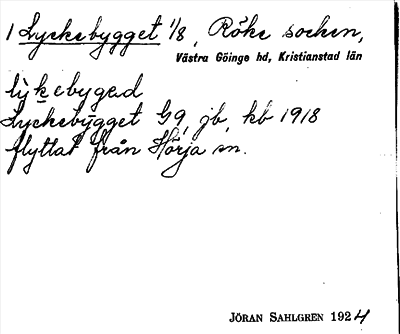 1 Lyckebygget 1/8, Röke socken,
Västra Göinge hd, Kristianstad län
lỳkebygəd
Lyckebygget G9, jb, kb 1918
flyttat från Hörja sn.
JÖRAN SAHLGREN 1924